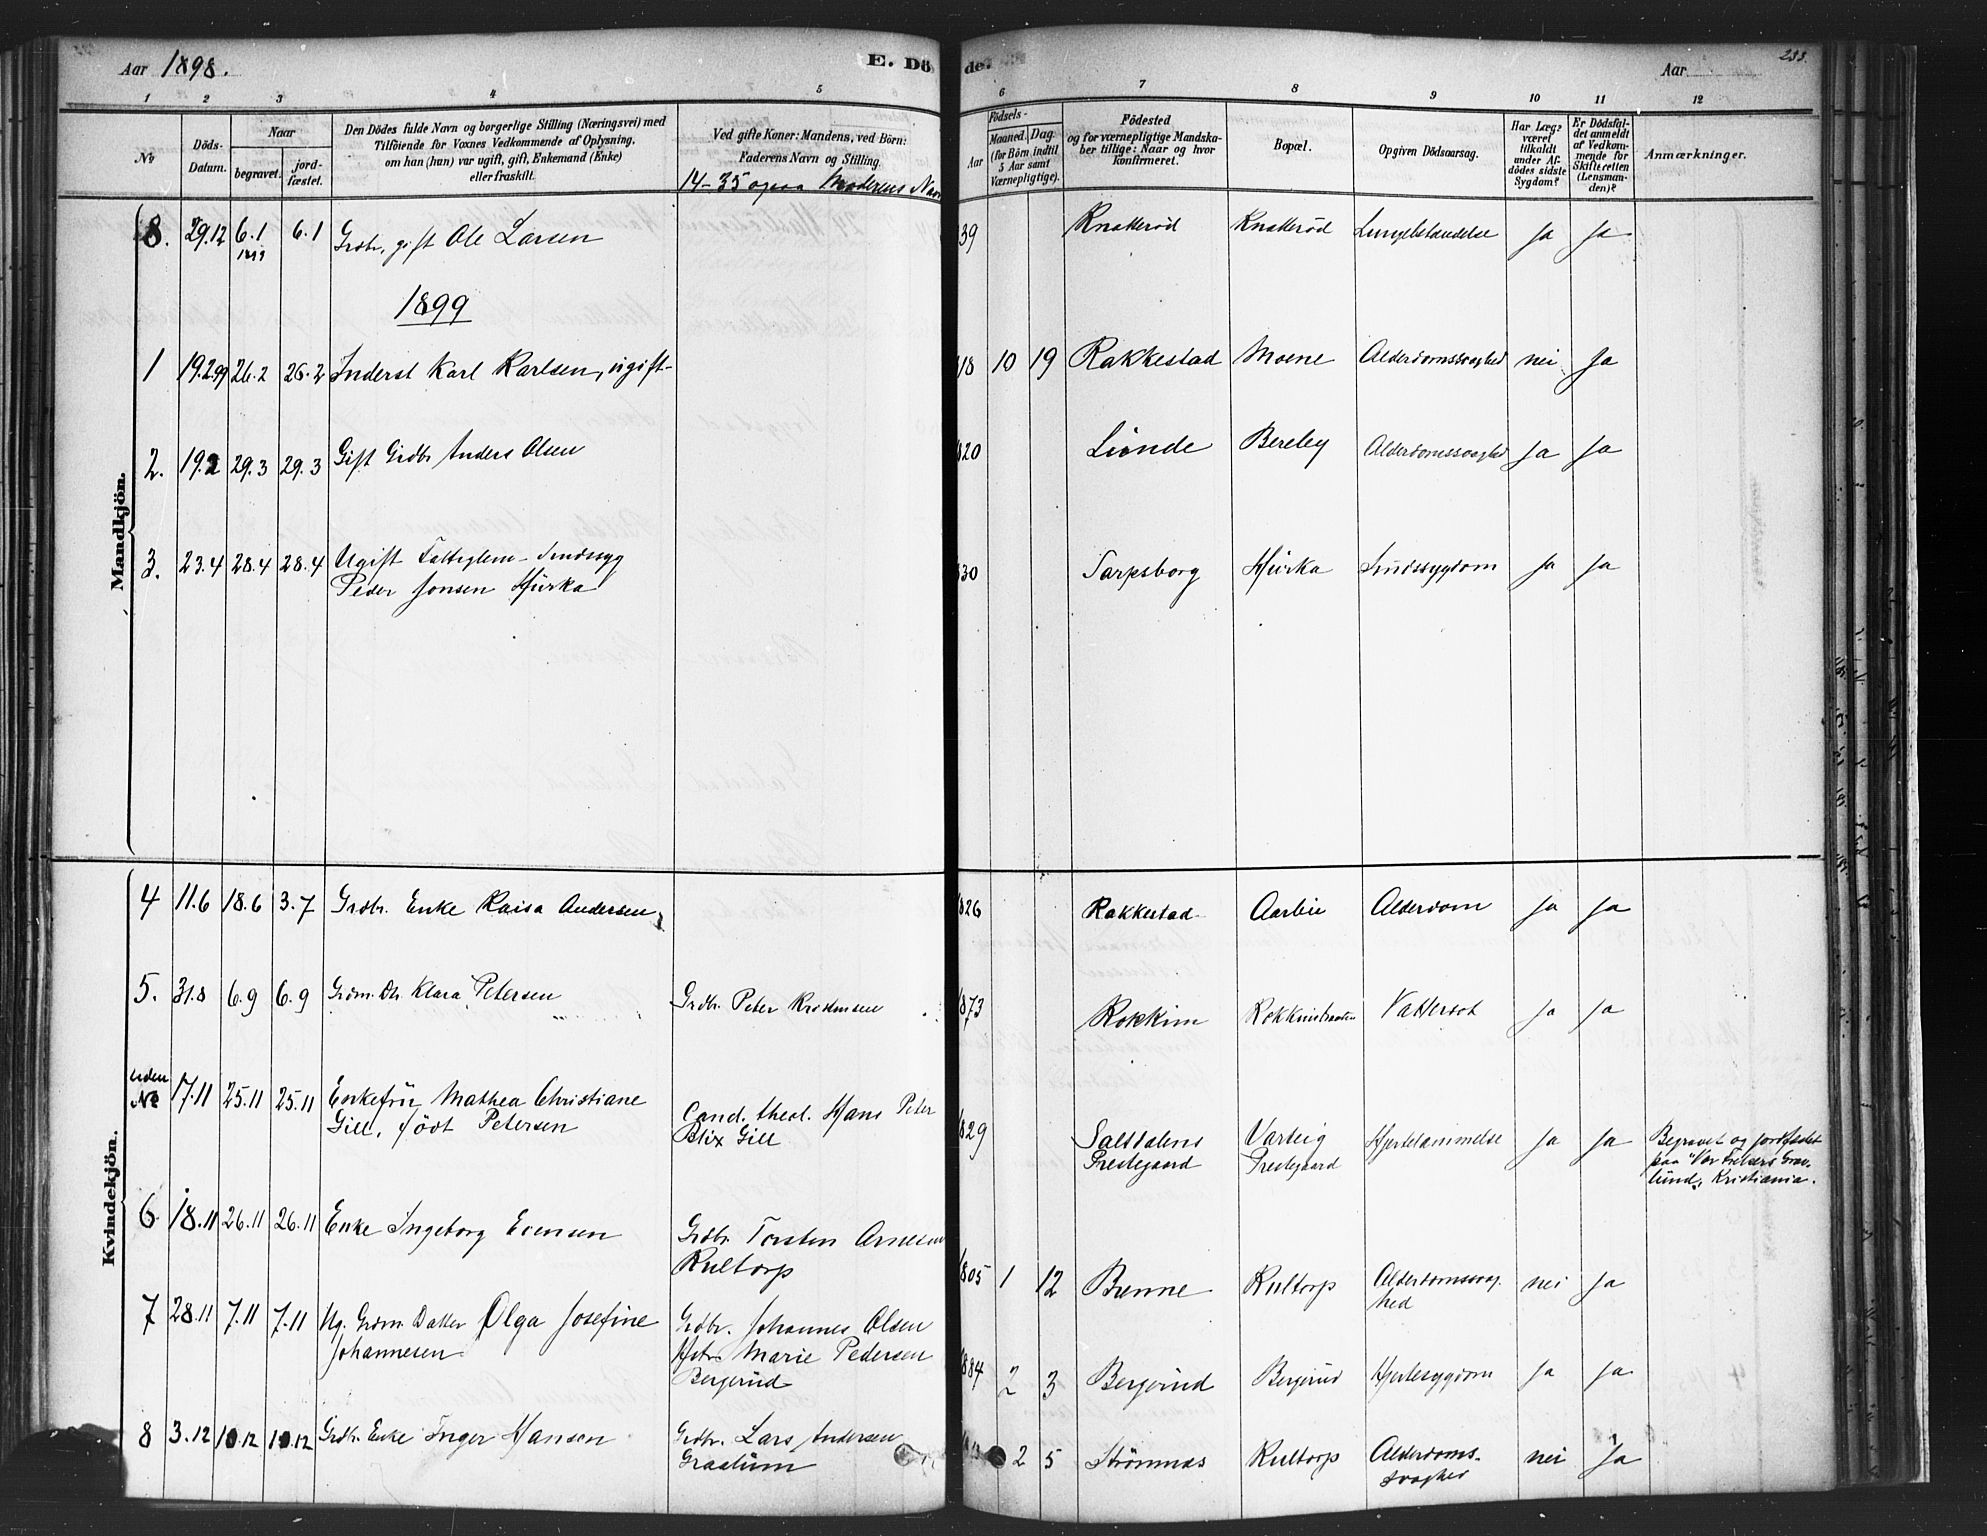 Aar 1898.
E. Dö
de
Aar
233.
1 2 3 4 5 6 7 8 9 10 11 12
No
Döds-
Datum.
Naar
begravet.
jord-
fæstet.
Den Dödes fulde Navn og borgerlige Stilling (Næringsvei) med
Tilföiende for Voxnes Vedkommende af Oplysning,
om han (hun) var ugift, gift, Enkemand (Enke)
eller fraskilt.
Ved gifte Koner: Mandens, ved Börn:
Faderens Navn og Stilling.
14-35 ogsaa Moderens Navn
Födsels-
Aar
Maaned.
Dag
(for Börn indtil
5 Aar samt
Værnepligtige).
Födested
og for værnepligtige Mandska-
ber tillige: Naar og hvor
konfirmeret.
Bopæl.
Opgiven Dödsaarsag.
Har Læge
været
tilkaldt
under Af-
dödes sidste
Sygdom?
Er Dödsfal-
det anmeldt
af Vedkom-
mende for
Skifteretten
(Lensman-
den)?
Anmærkninger.
Mandkjön.
8. 29.12 6.1 6.1 Grdbr, gift Ole Larsen 39 Knatteröd Knatteröd Lungebetændelse Ja Ja
1899
1899
1 19.2.99 26.2 26.2 Inderst Karl Karlsen, ugift 18 10 19 Rakkestad Moene Alderdomssvaghed nei Ja
2. 19.2 29.3 29.3 Gift Grdbr Anders Olsen 820 Lunde Bereby Alderdomssvaghed Ja Ja
3. 23.4 28.4 28.4 Ugift Fattiglem - Sindssyg 830 Sarpsborg Hurka Sindssygdom Ja Ja
Peder Jonsen Hurka
Kvindekjön.
4 11.6 18.6 3.7 Grdbr. Enke Raisa Andersen 826 Rakkestad Aarbu Alderdom Ja Ja
5. 31.8 6.9 6.9 Grdm. Dtr. Klara Petersen Grdbr. Peter Kristensen 873 Rokkim Vattersot Ja Ja
uden
No 17.11 25.11 25.11 Enkefru Mathea Christiane Cand. theol. Hans Peter 829 Saltdalens Varteig Hjertelammelse Ja Ja Begravet og jordfæstet
Gill, födt Petersen Blix Gill Prestegaard Prestegaard paa "Vor Frelsers Grav-
lund", Kristiania.
6 18.11 26.11 26.11 Enke Ingeborg Evensen Grdbr. Torsten Arnesen
Kultorp 1805 1 12 Brenne Kultorp Alderdomssvag-
hed nei Ja
7 28.11 7.11 7.11 Ug. Grdm. Datter Olga Josefine Grdbr. Johannes Olsen
Johannesen Hstr Marie Pedersen 884 2 3 Bergerud Bergerud Hjertesygdom Ja Ja
Bergerud
8 3.12 10.12 10.12 Grdbr. Enke Inger Hansen Grdbr. Lars Andersen 13 2 5 Strömnæs Kultorp Alderdoms- nei Ja
Graalum svaghed